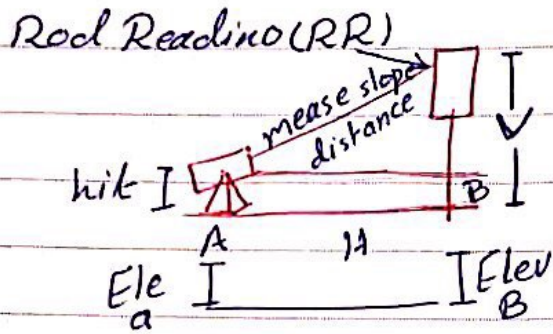 Rod Reading (RR)
mease slope
distance
hit
V
B
A
H
Ele
a
Elev
B